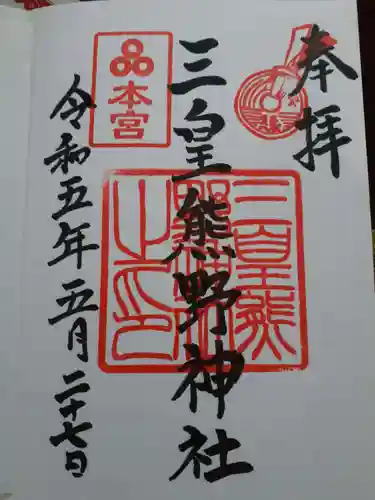 奉拝
三皇熊野神社
本宮
三皇熊
野神社
之印
令和五年五月二十七日